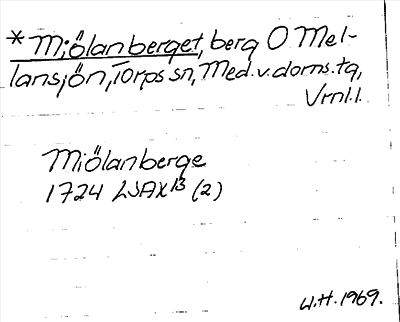 *Miölanberget, berg O Mel-
lansjön, Torps sn, Med.v.doms.tg,
Vrnl.l.
Miölanberge
1724 LSA X 13 (2)
U.H. 1969.